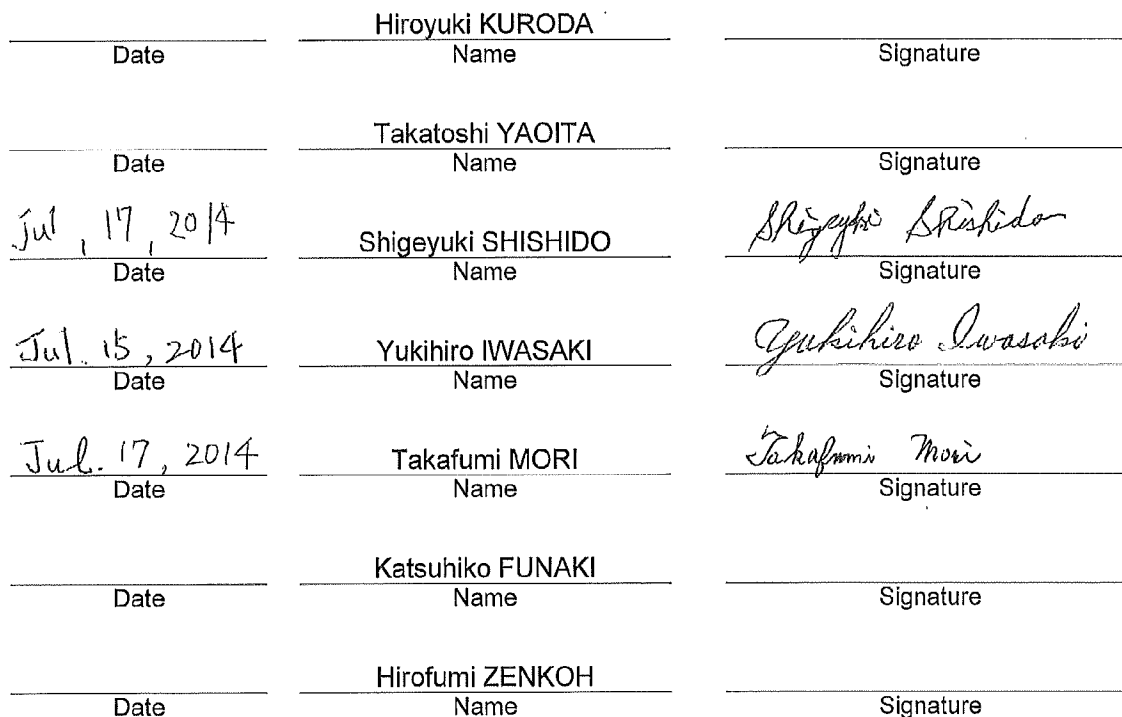 Hiroyuki KURODA
Date Name Signature
Takatoshi YAOITA
Date Name Signature
Jul, 17, 2014 Shigeyuki SHISHIDO Shigeyuki Shishido
Date Name Signature
Jul. 15, 2014 Yukihiro IWASAKI Yukihiro Iwasaki
Date Name Signature
Jul. 17, 2014 Takafumi MORI Takafumi Mori
Date Name Signature
Katsuhiko FUNAKI
Date Name Signature
Hirofumi ZENKOH
Date Name Signature